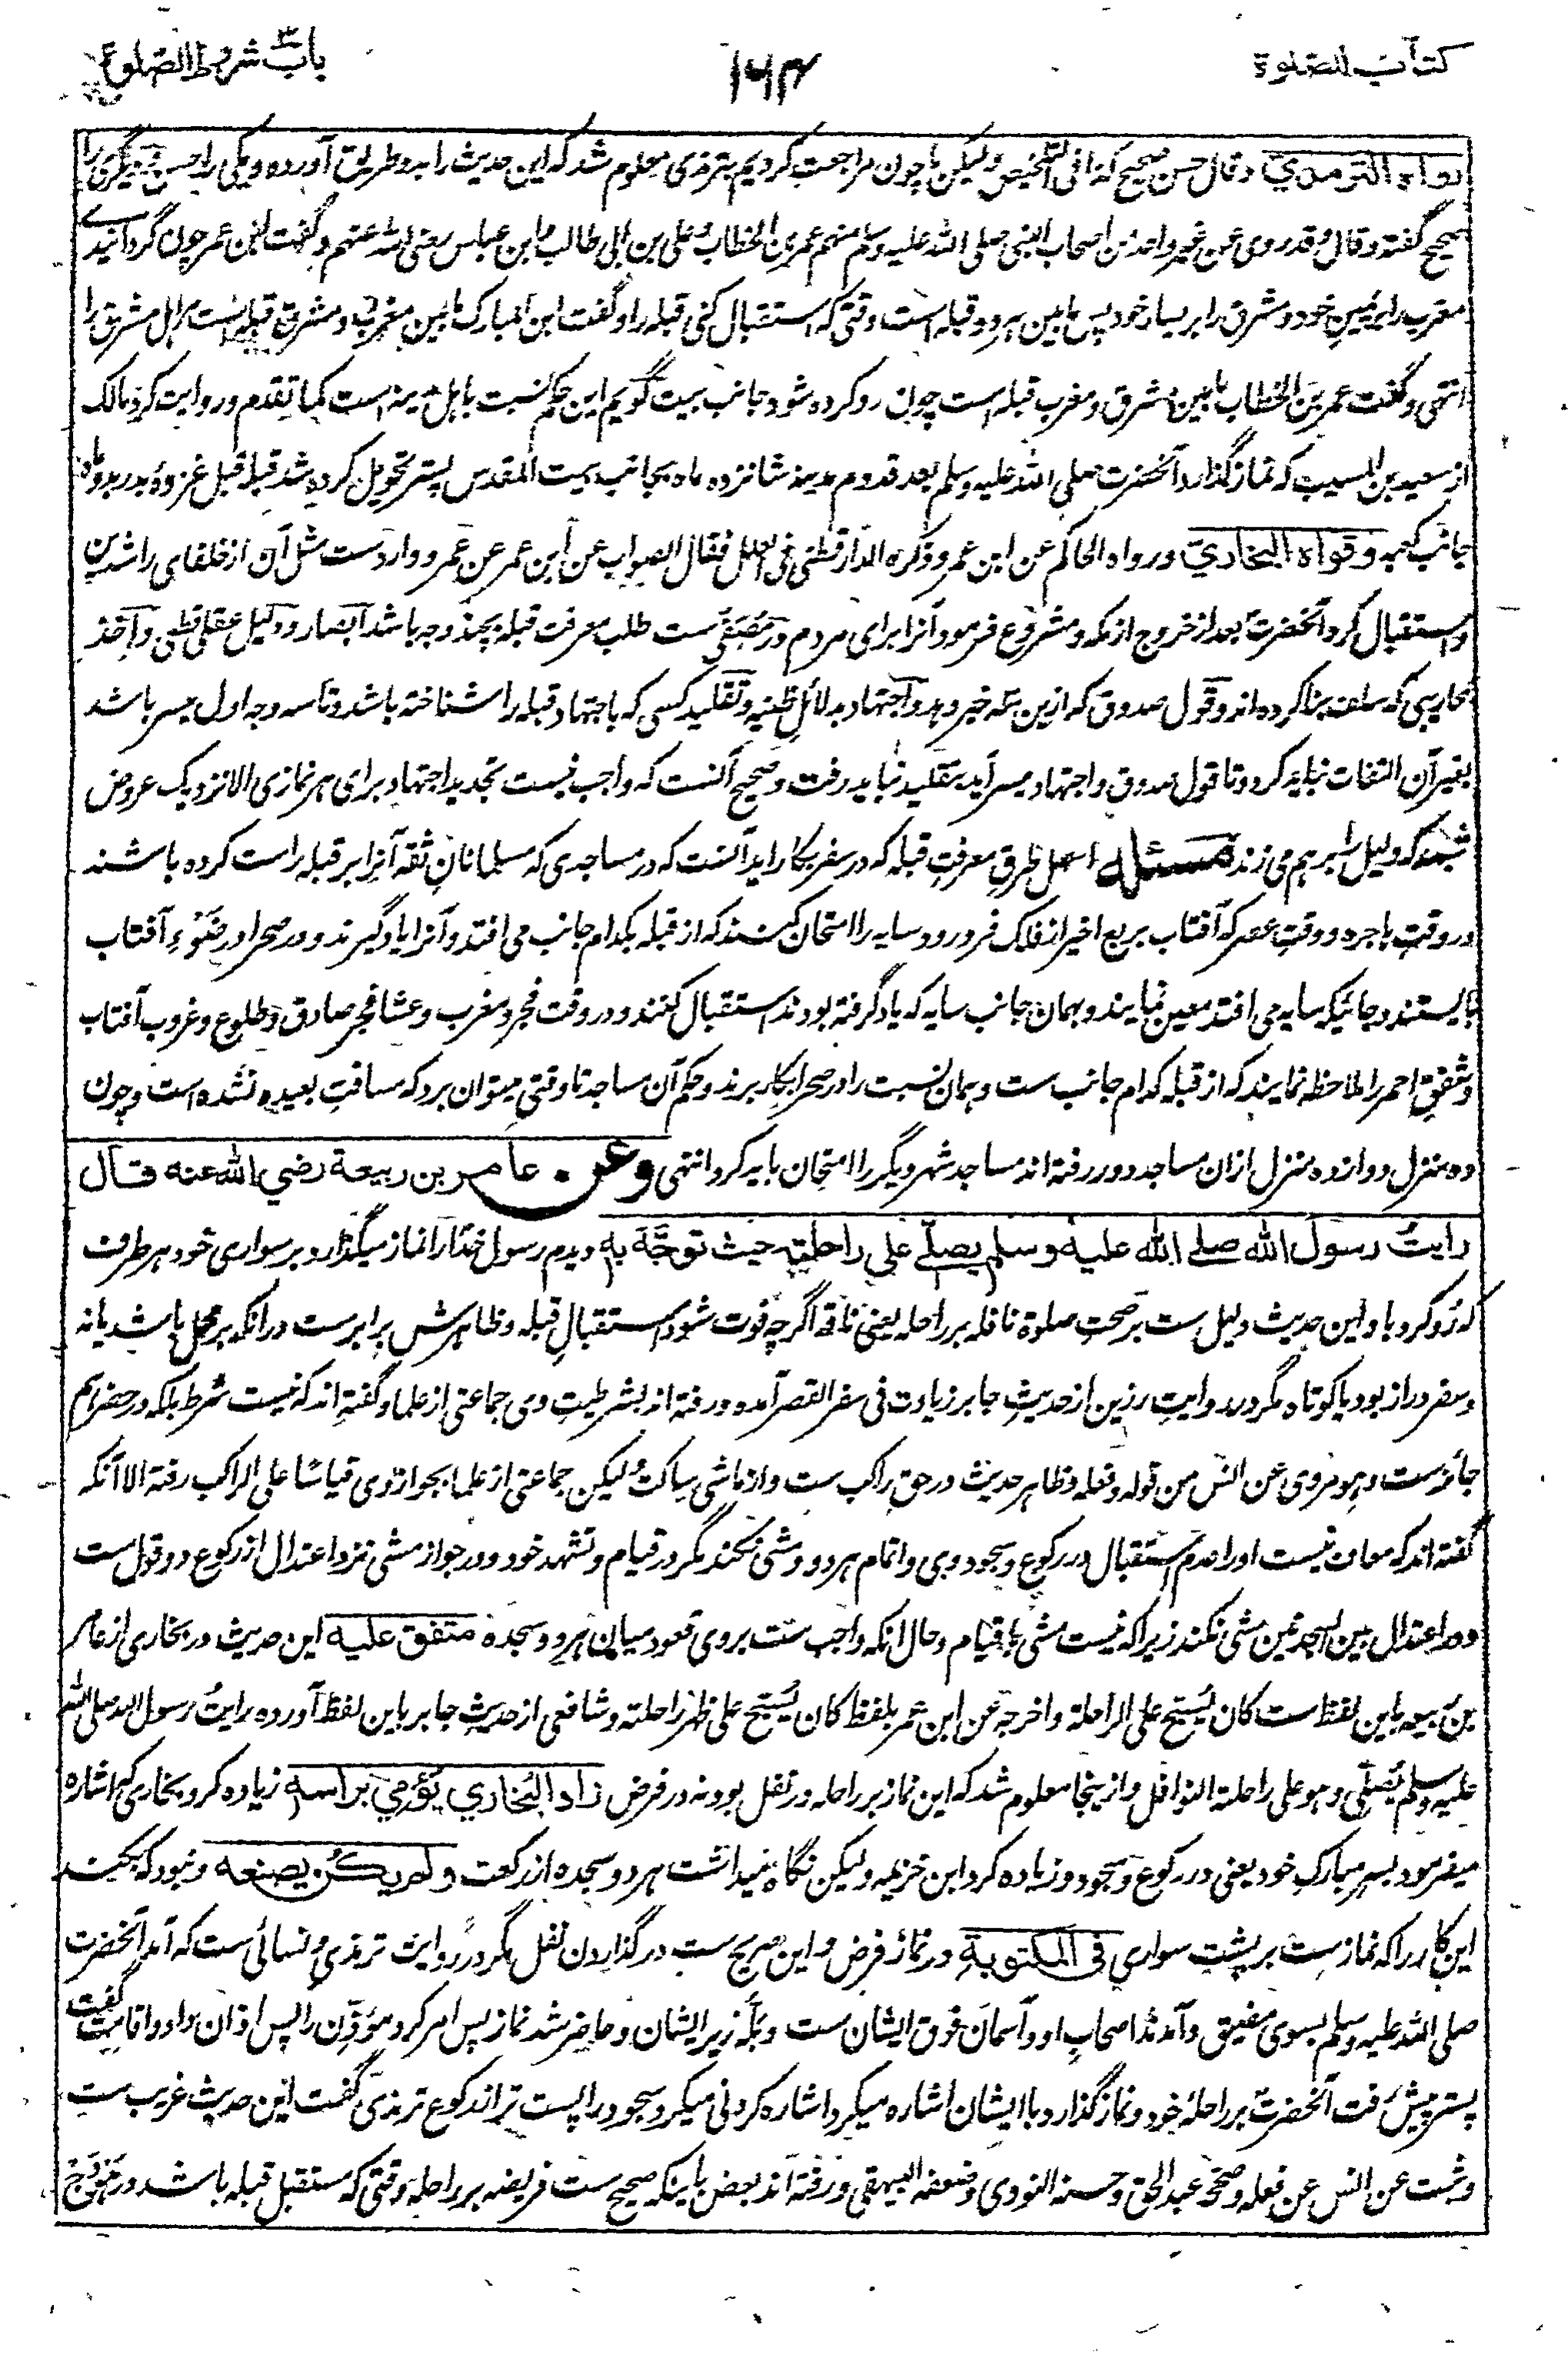 کتاب الصلوة
۱۶۴
باب شروط الصلوة
رواه الترمذي وقال حسن صحیح کذا فی التلخیص ولیکن ما چون مراجعت کردیم بترمذی معلوم شد که این حدیث را بدو طریق آورده و یکی را حسن و دیگری را
صحیح گفته وقال وقد روی عن غیر واحد من اصحاب النبی صلی الله علیه وسلم منهم عمر بن الخطاب و علی بن ابی طالب و ابن عباس رضی الله عنهم و گفت ابن عمر چون گردانیدے
مغرب را بر یمین خود و مشرق را بر یسار خود پس ما بین هر دو قبله است وقتی که استقبال کنی قبله را و گفت ابن المبارک ما بین مغرب و مشرق قبله است برای اهل مشرق را
انتهی و گفت عمر بن الخطاب ما بین مشرق و مغرب قبله است چون رو کرده شود جانب بیت گویم این حکم نسبت باهل مدینه است کما تقدم و روایت کرد مالک
از سعید بن المسیب که نماز گذارد آنحضرت صلی الله علیه وسلم بعد قدوم مدینه شانزده ماه بجانب بیت المقدس پستر تحویل کرده شد قبله قبل غزوهٔ بدر بدو ماه
جانب کعبه وقواه البخاري و رواه الحاکم عن ابن عمر و ذکره الدارقطنی فی العلل فقال الصواب عن ابن عمر عن عمر و وارد ست مثل آن از خلفای راشدین
و استقبال کرد آنحضرت بعد از خروج از مکه و مشروع فرمود آنرا برای مردم در مصفی ست طلب معرفت قبله بچند وجه باشد ابصار و دلیل عقلی قطعی و اخذ
بمحاریبی که سلف بنا کرده اند و قول صدوق که ازین همه خبر دهد و اجتهاد بدلائل ظنیه و تقلید کسی که باجتهاد قبله را شناخته باشد و تا سه وجه اول میسر باشد
بغیر آن التفات نباید کرد و تا قول صدوق و اجتهاد میسر آید بتقلید نباید رفت و صحیح آنست که واجب نیست تجدید اجتهاد برای هر نمازی الا نزدیک عروض
شبهه که دلیل را برهم می زند مسئله اسهل طرق معرفت قبله که در سفر بکار آید آنست که در مساجدی که مسلمانان ثقه آنرا بر قبله راست کرده باشند
در وقت هاجره و وقت عصر که آفتاب بربع اخیر از فلک فرو رود سایه را امتحان کنند که از قبله بکدام جانب می افتد و آنرا یاد گیرند و در صحرا در ضوء آفتاب
بایستند و جائیکه سایه می افتد معین نمایند و بهمان جانب سایه که یاد گرفته بودند استقبال کنند و در وقت فجر و مغرب و عشا فجر صادق و طلوع و غروب آفتاب
و شفق احمر را ملاحظه نمایند که از قبله کدام جانب ست و همان نسبت را در صحرا بکار برند و حکم آن مساجد تا وقتی میتوان برد که مسافت بعیده نشده است و چون
ده منزل دوازده منزل ازان مساجد دور رفته اند مساجد شهر دیگر را امتحان باید کرد انتهی وعن عامر بن ربیعة رضي الله عنه قال
رایت رسول الله صلے الله علیه وسلم یصلے علی راحلته حیث توجه به دیدم رسول خدا را نماز میگذارد بر سواری خود بهر طرف
که رو کرد باو این حدیث دلیل ست بر صحت صلوة نافله بر راحله یعنی ناقه اگرچه فوت شود استقبال قبله و ظاهرش برابرست در آنکه بر محمل باشد یا نه
و سفر دراز بود یا کوتاه مگر در روایت رزین از حدیث جابر زیادت فی سفر القصر آمده و رفته اند بشرطیت وی جماعتی از علما و گفته اند که نیست شرط بلکه در حضر هم
جائز ست و هو مروی عن انس من قوله و فعله و ظاهر حدیث در حق راکب ست و از ماشی ساکت و لیکن جماعتی از علما بجواز وی قیاسا علی الراکب رفته الا آنکه
گفته اند که معاف نیست او را عدم استقبال در رکوع و سجود وی و اتمام هر دو و مشی نکند مگر در قیام و تشهد خود و در جواز مشی نزد اعتدال از رکوع دو قول ست
و در اعتدال بین السجدتین مشی نکند زیرا که نیست مشی با قیام و حال آنکه واجب ست بروی قعود میان هر دو سجده متفق علیه این حدیث در بخاری از عامر
بن ربیعه باین لفظ ست کان یسبح علی الراحلة و اخرجه عن ابن عمر بلفظ کان یسبح علی ظهر راحلته و شافعی از حدیث جابر باین لفظ آورده رایت رسول الله صلی الله
علیه وسلم یصلی و هو علی راحلته النوافل و از ینجا معلوم شد که این نماز بر راحله در نفل بود نه در فرض زاد البخاري یؤمي براسه زیاده کرد بخاری که اشاره
میفرمود بسر مبارک خود یعنی در رکوع و سجود و زیاده کرد ابن خزیمه و لیکن نگاه نمیداشت هر دو سجده از رکعت ولم یکن یصنعه و نبود که بکند
این کار را که نماز ست بر پشت سواری في المکتوبة در نماز فرض و این صریح ست در گذاردن نفل مگر در روایت ترمذی و نسائی ست که آمد آنحضرت
صلی الله علیه وسلم بسوی مضیق و آمدند اصحاب او و آسمان فوق ایشان ست و بله زیر ایشان و حاضر شد نماز پس امر کرد مؤذن را پس اذان داد و اقامت گفت
پستر پیش رفت آنحضرت بر راحلهٔ خود و نماز گذارد با ایشان اشاره میکرد اشاره کردنی میکرد سجود را پست تر از رکوع ترمذی گفت این حدیث غریب ست
و ثبت عن انس عن فعله و صححه عبد الحق و حسنه النووی و ضعفه البیهقی و رفته اند بعض باینکه صحیح ست فریضه بر راحله وقتی که مستقبل قبله باشد در هودج